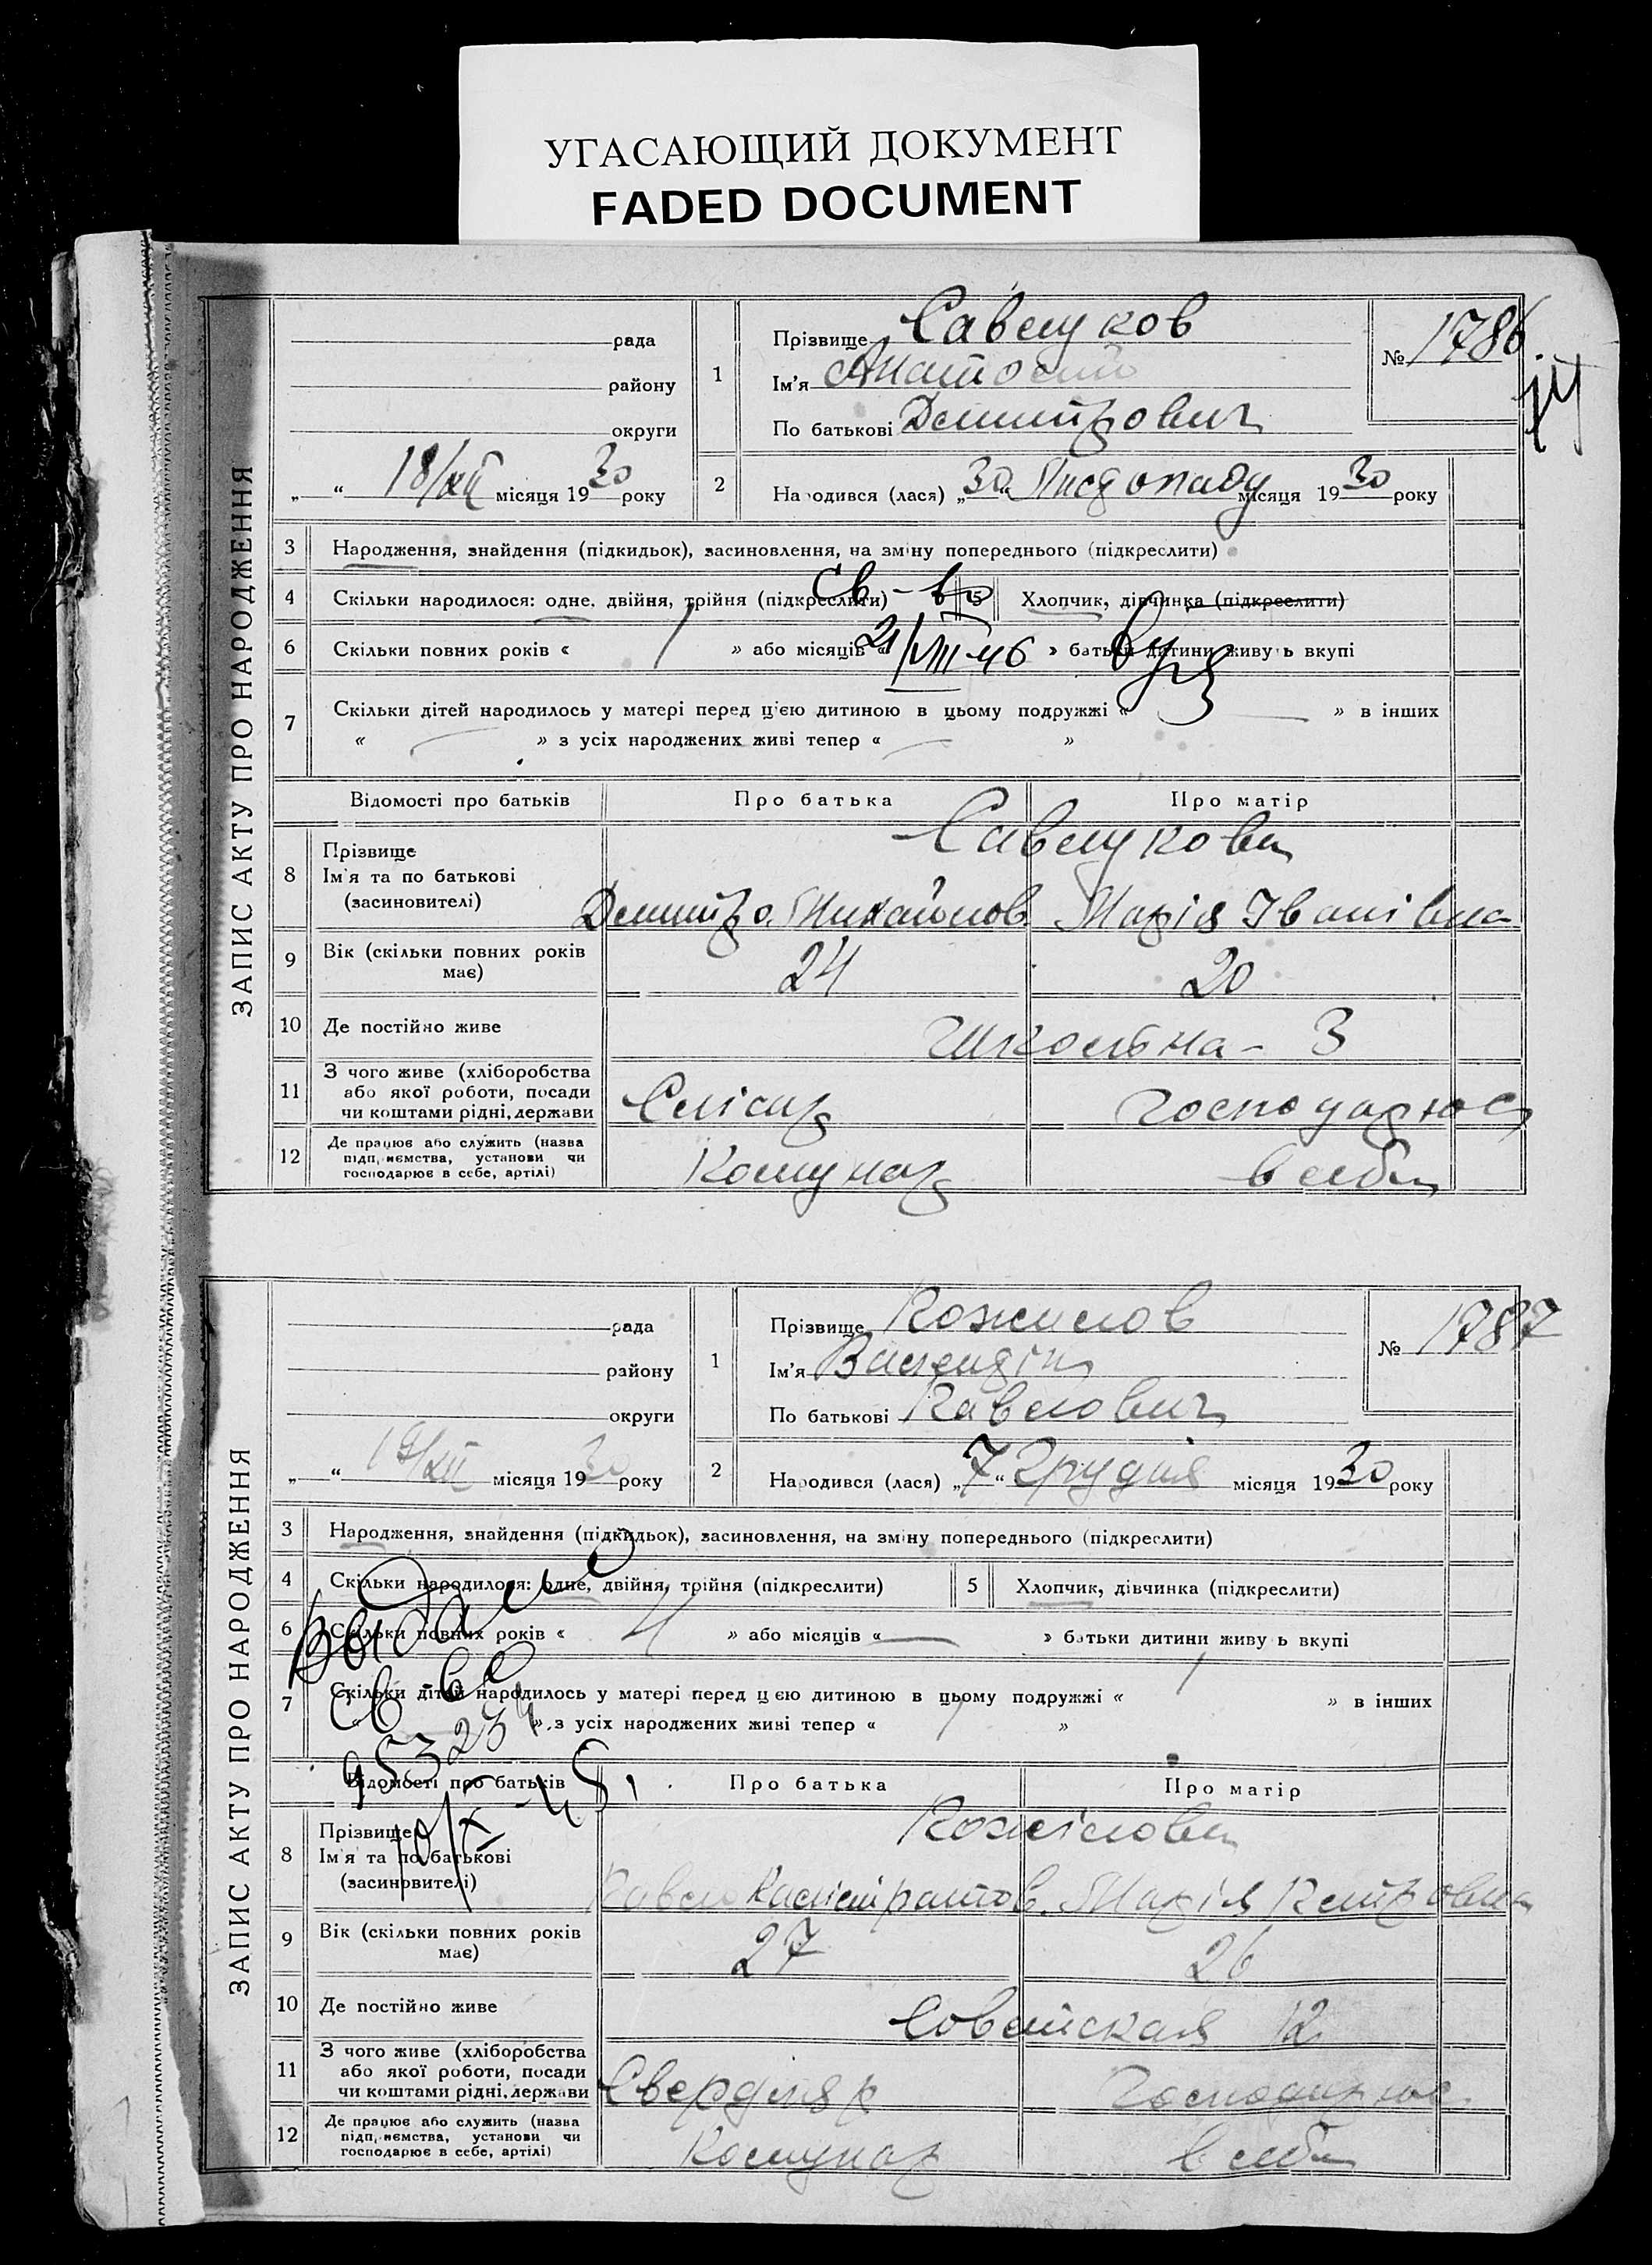 УГАСАЮЩИЙ ДОКУМЕНТ
FADED DOCUMENT
ЗАПИС АКТУ ПРО НАРОДЖЕННЯ
рада
району
округи
„ “ 18/XII місяця 1930 року
1
Прізвище Савлуков
Ім'я Анатолій
По батькові Дмитрович
№ 1786
2
Народився (лася) „30“ Листопаду місяця 1930 року
3 Народження, знайдення (підкидьок), засиновлення, на зміну попереднього (підкреслити)
4 Скільки народилося: одне, двійня, трійня (підкреслити)
5 Хлопчик, дівчинка (підкреслити)
Св-во
6 Скільки повних років « 1 » або місяців « » батьки дитини живуть вкупі
21/VIII-46
7 Скільки дітей народилось у матері перед цією дитиною в цьому подружжі « — » в інших
« — » з усіх народжених живі тепер « — »
Відомості про батьків Про батька Про матір
8 Прізвище
Ім'я та по батькові
(засиновителі)
Савлукови
Дмитро Михайлов. Марія Іванівна
9 Вік (скільки повних років має) 24 20
10 Де постійно живе Школьна - 3
11 З чого живе (хліборобства
або якої роботи, посади
чи коштами рідні, держави
Слісар Господарює
12 Де працює або служить (назва
підприємства, установи чи
господарює в себе, артілі)
Комунар в себе
ЗАПИС АКТУ ПРО НАРОДЖЕННЯ
рада
району
округи
„ “ 19/XII місяця 1930 року
1
Прізвище Кожилов
Ім'я Валендін
По батькові Павлович
№ 1787
2
Народився (лася) „7“ Грудня місяця 1930 року
3 Народження, знайдення (підкидьок), засиновлення, на зміну попереднього (підкреслити)
4 Скільки народилося: одне, двійня, трійня (підкреслити)
5 Хлопчик, дівчинка (підкреслити)
6 Скільки повних років « 4 » або місяців « — » батьки дитини живуть вкупі
Выдано
7 Скільки дітей народилось у матері перед цією дитиною в цьому подружжі « 1 » в інших
« » з усіх народжених живі тепер « 1 »
св-во
Відомості про батьків Про батька Про матір
8 Прізвище
Ім'я та по батькові
(засиновителі)
Кожілови
Павло Калістратов. Марія Петровна
9 Вік (скільки повних років має) 27 26
10 Де постійно живе Советская 12
11 З чого живе (хліборобства
або якої роботи, посади
чи коштами рідні, держави
Свердляр Господарює
12 Де працює або служить (назва
підприємства, установи чи
господарює в себе, артілі)
Комунар в себе